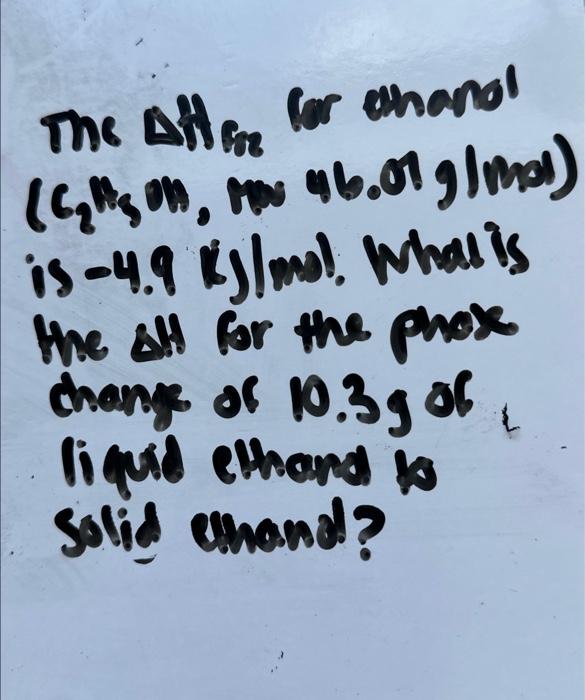 The ΔH frz for ethanol
(C₂H₅OH, MW 46.07 g/mol)
is -4.9 kJ/mol. What is
the ΔH for the phase
change of 10.3g of
liquid ethanol to
solid ethanol?